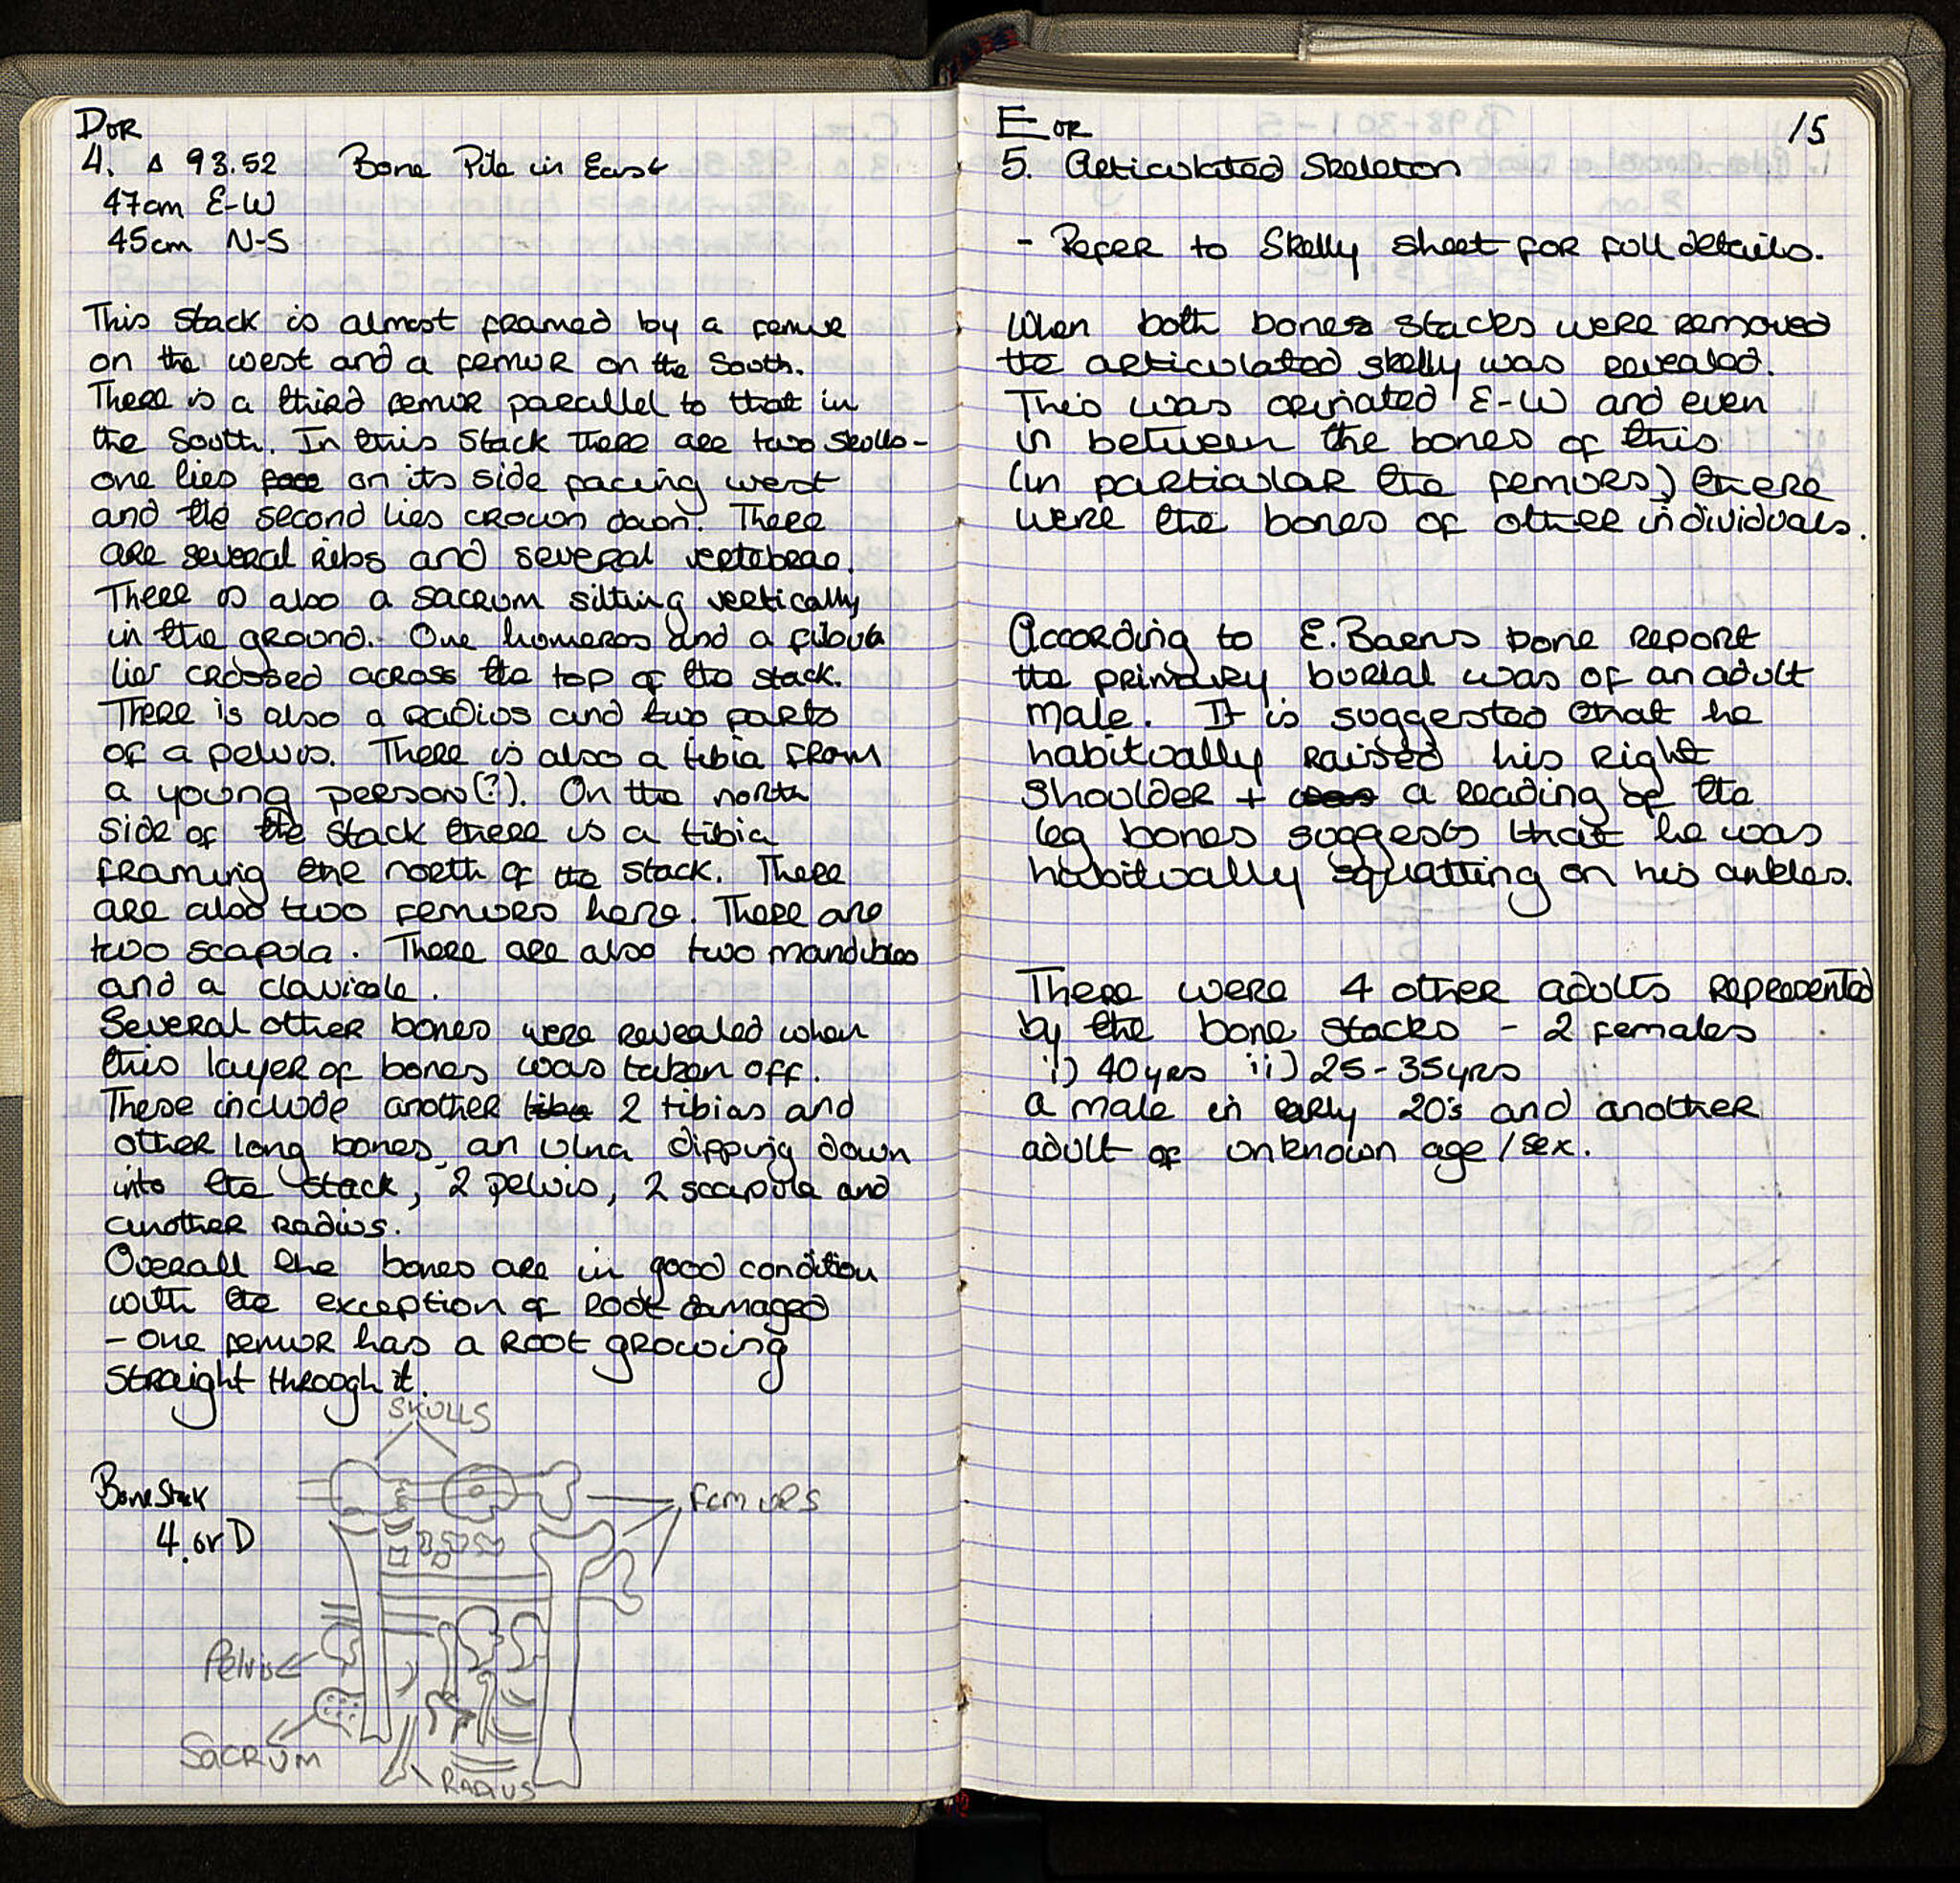 D or
4. Δ 93.52 Bone Pile in East
47cm E-W
45cm N-S
This stack is almost framed by a femur
on the west and a femur on the South.
There is a third femur parallel to that in
the South. In this stack there are two skulls -
one lies face on its side facing west
and the second lies crown down. There
are several ribs and several vertebrae.
There is also a sacrum sitting vertically
in the ground. One humerus and a fibula
lies crossed across the top of the stack.
There is also a radius and two parts
of a pelvis. There is also a tibia from
a young person(?). On the north
side of the stack there is a tibia
framing the north of the stack. There
are also two femurs here. There are
two scapula. There are also two mandibles
and a clavicle.
Several other bones were revealed when
this layer of bones was taken off.
These include another tibia 2 tibias and
other long bones, an ulna dipping down
into the stack, 2 pelvis, 2 scapula and
another radius.
Overall the bones are in good condition
with the exception of root damaged
- one femur has a root growing
straight through it.
SKULLS
Bone Stack
4. or D
FEMURS
Pelvis
SACRUM
RADIUS
E or
15
5. Articulated Skeleton
- Refer to Skelly sheet for full details.
When both bones stacks were removed
the articulated skelly was revealed.
This was orinated E-W and even
in between the bones of this
(in particular the femurs) there
were the bones of other individuals.
According to E. Barns bone report
the primary burial was of an adult
male. It is suggested that he
habitually raised his right
shoulder + a reading of the
leg bones suggests that he was
habitually squatting on his ankles.
There were 4 other adults represented
by the bone stacks - 2 females
i) 40yrs ii) 25-35yrs
a male in early 20's and another
adult of unknown age/sex.